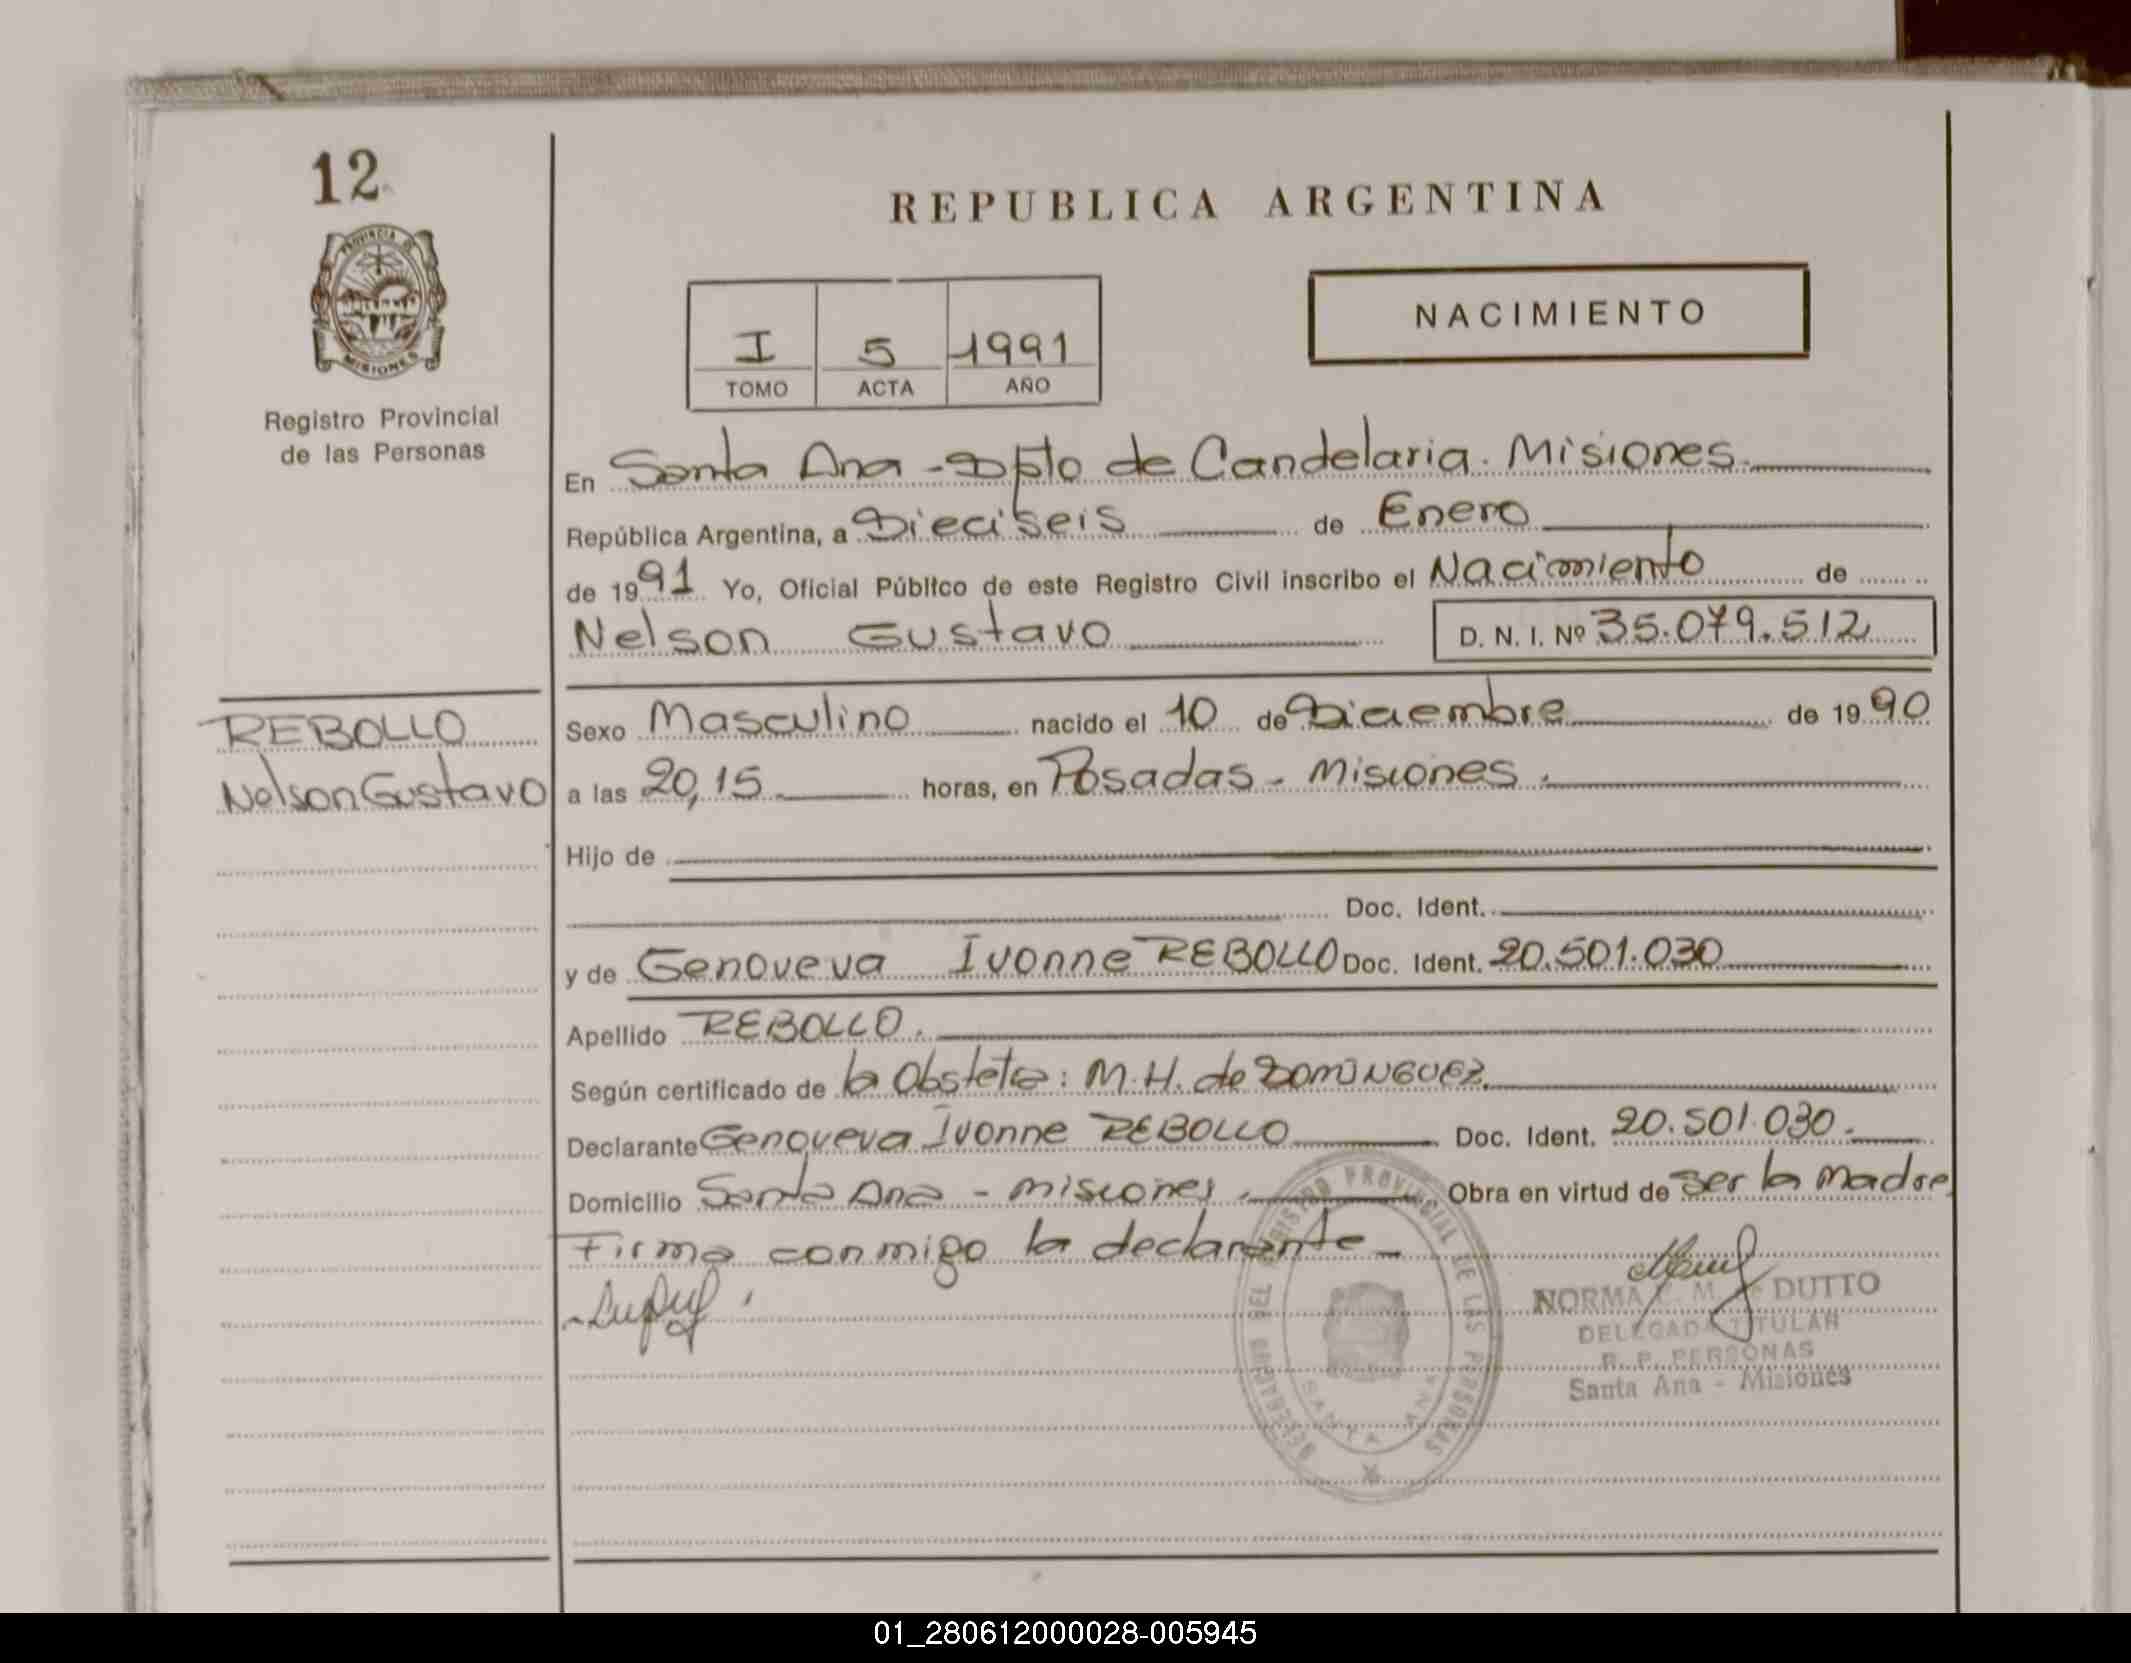 12
PROVINCIA DE
MISIONES
Registro Provincial
de las Personas
REPUBLICA ARGENTINA
I 5 1991
TOMO ACTA AÑO
NACIMIENTO
En Santa Ana - Dpto de Candelaria. Misiones.
República Argentina, a Dieciseis de Enero
de 1991 Yo, Oficial Público de este Registro Civil inscribo el Nacimiento de
Nelson Gustavo D. N. I. Nº 35.079.512
REBOLLO
Nelson Gustavo
Sexo Masculino nacido el 10 de Diciembre de 1990
a las 20,15 horas, en Posadas - Misiones.
Hijo de
Doc. Ident.
y de Genoveva Ivonne REBOLLO Doc. Ident. 20.501.030
Apellido REBOLLO.
Según certificado de la Obstetra: M.H. de DOMINGUEZ.
Declarante Genoveva Ivonne REBOLLO Doc. Ident. 20.501.030.
Domicilio Santa Ana - Misiones. Obra en virtud de ser la Madre
Firma conmigo la declarante
REGISTRO PROVINCIAL DE LAS PERSONAS
SANTA ANA
NORMA M. DUTTO
DELEGADA TITULAR
R. P. PERSONAS
Santa Ana - Misiones
01_280612000028-005945